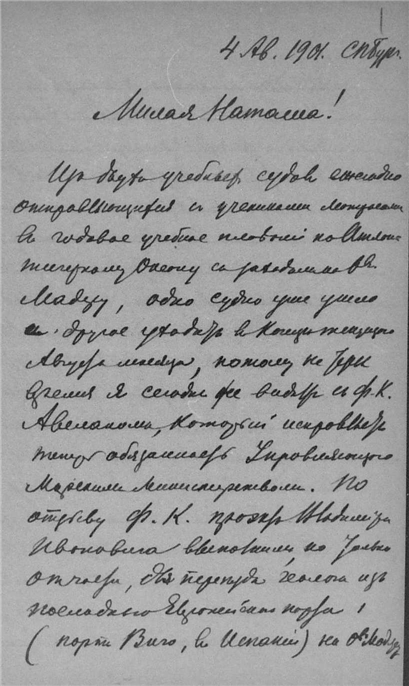 4 Ав. 1901. СПбург.
Милая Наташа!
Из двух учебных судов ежегодно
отправляющихся с учениками матросами
в годовое учебное плавание по Атлан
тическому Океану с заходом на Ов
Мадеру, одно судно уже ушло
а другое уходит в конце текущего
Августа месяца, потому не теряя
времени я сегодня же видел с Ф. К.
Авеланом, который исправляет
теперь обязанность Управляющего
Морским Министерством. По
отзыву Ф. К. просьба Владимира
Ивановича, но только
отчасти, для переезда из
последнего Европейского порта
(порта Виго, в Испании) на ов Мадеру